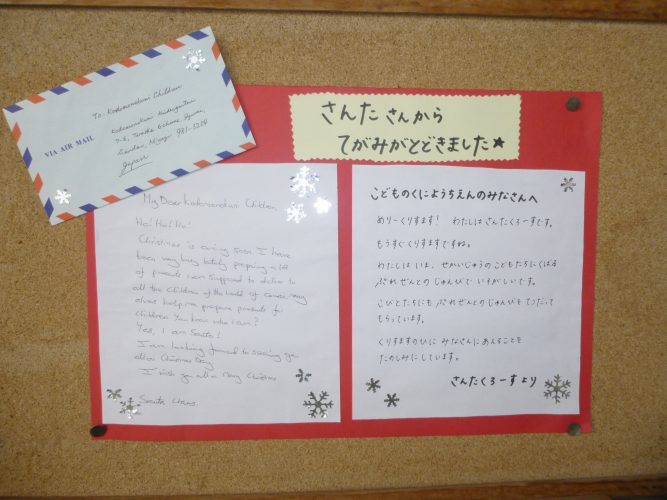 To: Kodomonokuni Children
Kodomonokuni Kindergarten
Japan
VIA AIR MAIL
さんたさんから
てがみがとどきました★
My Dear Kodomonokuni Children
Ho! Ho! Ho!
Christmas is coming soon. I have
been very busy lately preparing a lot
of presents I am supposed to deliver to
all the children of the world of course, many
elves help me prepare presents for
children. You know who I am?
Yes, I am Santa!
I am looking forward to seeing you
all on Christmas Day.
I wish you all a Merry Christmas
Santa Claus
こどものくにようちえんのみなさんへ
めりーくりすます! わたしはさんたくろーすです。
もうすぐくりすますですね。
わたしはいま、せかいじゅうのこどもたちにくばる
ぷれぜんとのじゅんびでいそがしいです。
こびとたちにもぷれぜんとのじゅんびをてつだって
もらっています。
くりすますのひにみなさんにあえることを
たのしみにしています。
さんたくろーすより